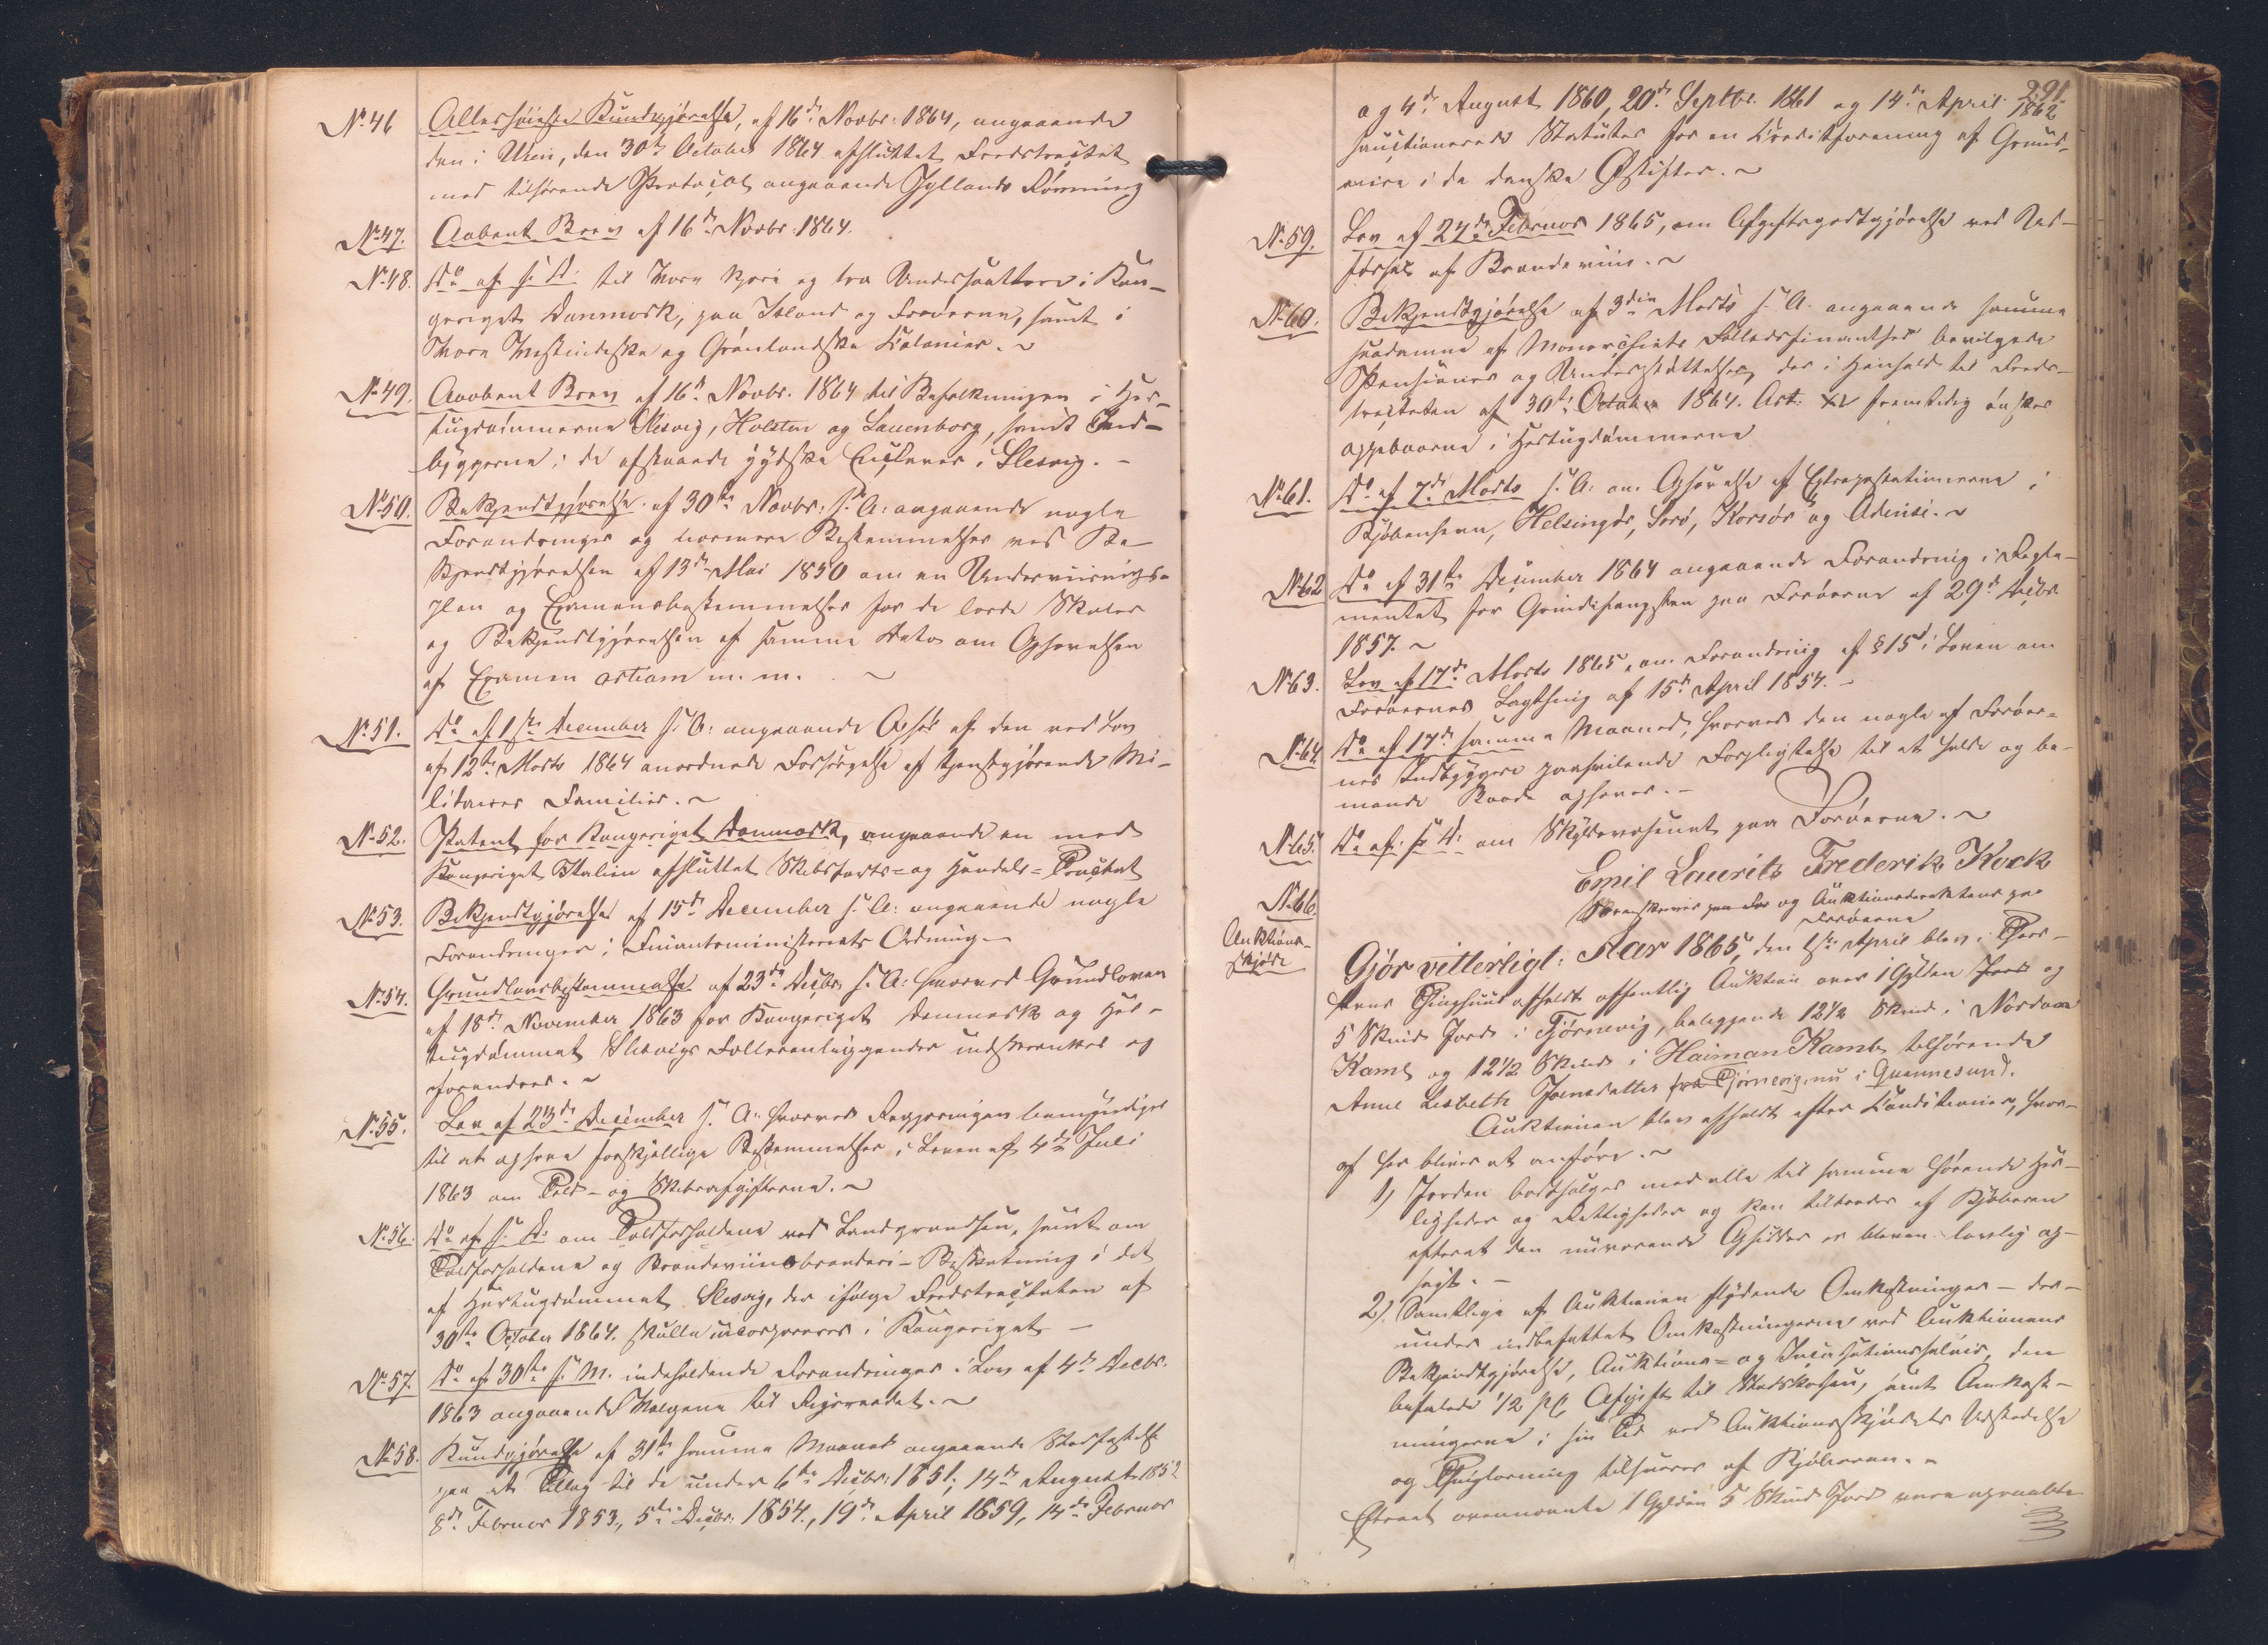 No 46 Allerhøieste Kundgjørelse, af 16de Novbr. 1864, angaaende
den i Wien, den 30te October 1864 afsluttet Fredstractat
med tilhørende Protocol angaaende Jyllands Rømning
No 47. Aabent Brev af 16de Novbr. 1864.
No 48. Do af s. D. til Vore kjere og tro Undersaatter i Kon-
geriget Danmark, paa Island og Færøerne, samt i
Vore Vestindiske og Grønlandske Colonier. ~
No 49. Aabent Brev af 16de Novbr. 1864 til Befolkningen i Her-
tugdømmerne Slesvig, Holsten og Lauenborg, samt Ind-
byggerne i de afstaaede jydske Enclaver i Slesvig. -
No 50. Bekjendtgjørelse af 30te Novbr. s. A. angaaende nogle
Forandringer og nærmere Bestemmelser ved Be-
kjendtgjørelsen af 13de Mai 1850 om en Underviisnings-
plan og Examensbestemmelser for de lærde Skoler
og Bekjendtgjørelsen af samme Dato om Ophævelsen
af Examen artium m. m. ~
No 51. Do af 1ste December s. A. angaaende Ophør af den ved Lov
af 12te Marts 1864 anordnede Forsørgelse af tjenstgjørende Mi-
litaires Familier. ~
No 52. Patent for Kongeriget Danmark, angaaende en med
Kongeriget Italien afsluttet Skibsfarts- og Handels-Tractat
No 53. Bekjendtgjørelse af 15de December s. A. angaaende nogle
Forandringer i Finantsministeriets Ordning. -
No 54. Grundlovsbestemmelse af 23de Decbr. s. A. hvorved Grundloven
af 18de November 1863 for Kongeriget Danmark og Her-
tugdømmet Slesvigs Fællesanliggender indskrænkes og
forandres. ~
No 55. Lov af 23de December s. A. hvorved Regjeringen bemyndiges
til at ophæve forskjellige Bestemmelser i Loven af 4de Juli
1863 om Told- og Skibsafgifterne. ~
No 56. Do af s. D. om Toldforholdene ved Landgrændsen, samt om
Toldforholdene og Brændeviinsbrænderi-Beskatning i det
af Hertugdømmet Slesvig, der ifølge Fredstractaten af
30te October 1864. skulle incorporeres i Kongeriget -
No 57. Do af 30te s. M. indeholdende Forandringer i Lov af 4de Decbr.
1863 angaaende Valgene til Rigsraadet. ~
No 58. Kundgjørelse af 31te samme Maaned angaaende Stadfæstelse
paa et Tillæg til de under 6te Decbr. 1851, 14de August 1852
8de Februar 1853, 5te Decbr. 1854., 19de April 1859, 14de Februar
291
og 4de August 1860, 20de Septbr. 1861 og 14de April 1862
sanctionerede Statuter for en Creditforening af Grund-
eiere i de danske Østifter. ~
No 59. Lov af 24de Februar 1865, om Afgiftsgodtgjørelse ved Ud-
førsel af Brændeviin. ~
No 60. Bekjendtgjørelse af 3die Marts s. A. angaaende samme
saadanne af Monarchiets Fælledsfinantser bevilgede
Pensioner og Understøttelser, der i Henhold til Freds-
tractaten af 30te October 1864. Art: XV fremtidig ønskes
oppebaarne i Hertugdømmerne
No 61. Do af 7de Marts s. A. om Ophævelse af Extrapostationerne i
Kjøbenhavn, Helsingør, Sorø, Korsør og Odense. ~
No 62 Do af 31te December 1864 angaaende Forandring i Regle-
mentet for Grindefangsten paa Færøerne af 29de Decbr
1857. ~
No 63. Lov af 17de Marts 1865, om Forandring af § 15 i Loven om
Færøernes Lagthing af 15de April 1854. -
No 64. Do af 17de samme Maaned, hvorved den nogle af Færøer-
nes Indbyggere paahvilende Forpligtelse til at holde og be-
mande Baade ophæves. -
No 65. Do af. s. D. om Skydsvæsenet paa Færøerne. ~
Emil Laurits Frederik Kock
Sorenskriver paa Fær og Auktionsdirekteur paa
Færøerne
No 66.
Auktions-
skjøde
Gjør vitterligt: Aar 1865, den 1ste April blev i Thors-
havns Thinghuus afholdt offentlig Auktion over 1 Gylden og
5 Skind Jord i Tjørnevig, beliggende 12½ Skind i Nordan
Kamb og 12½ Skind i Haiman Kamb, tilhørende
Anne Lisbeth Joensdatter fra Tjørnevig, nu i Qvannesund.
Auktionen blev afholdt efter Conditioner, hvor-
af her bliver at anføre. ~
1) Jorden bortsælges med alle til samme hørende Her-
ligheder og Rettigheder og kan tiltrædes af Kjøberen
efterat den nuværende Opsidder er bleven lovlig op-
sagt. -
2) Samtlige af Auktionen flydende Omkostninger - der-
under indbefattet Omkostningerne ved Auktionens
Bekjendtgjørelse, Auktions- og Incassationssalair, den
befalede ½ pCt Afgift til Statskassen, samt Omkost-
ningerne i sin Tid ved Auktionsskjødets Udstedelse
og Thinglæsning tilsvares af Kjøberen. -
Efterat ovennævnte 1 Gylden 5 Skind Jord vare opraabte